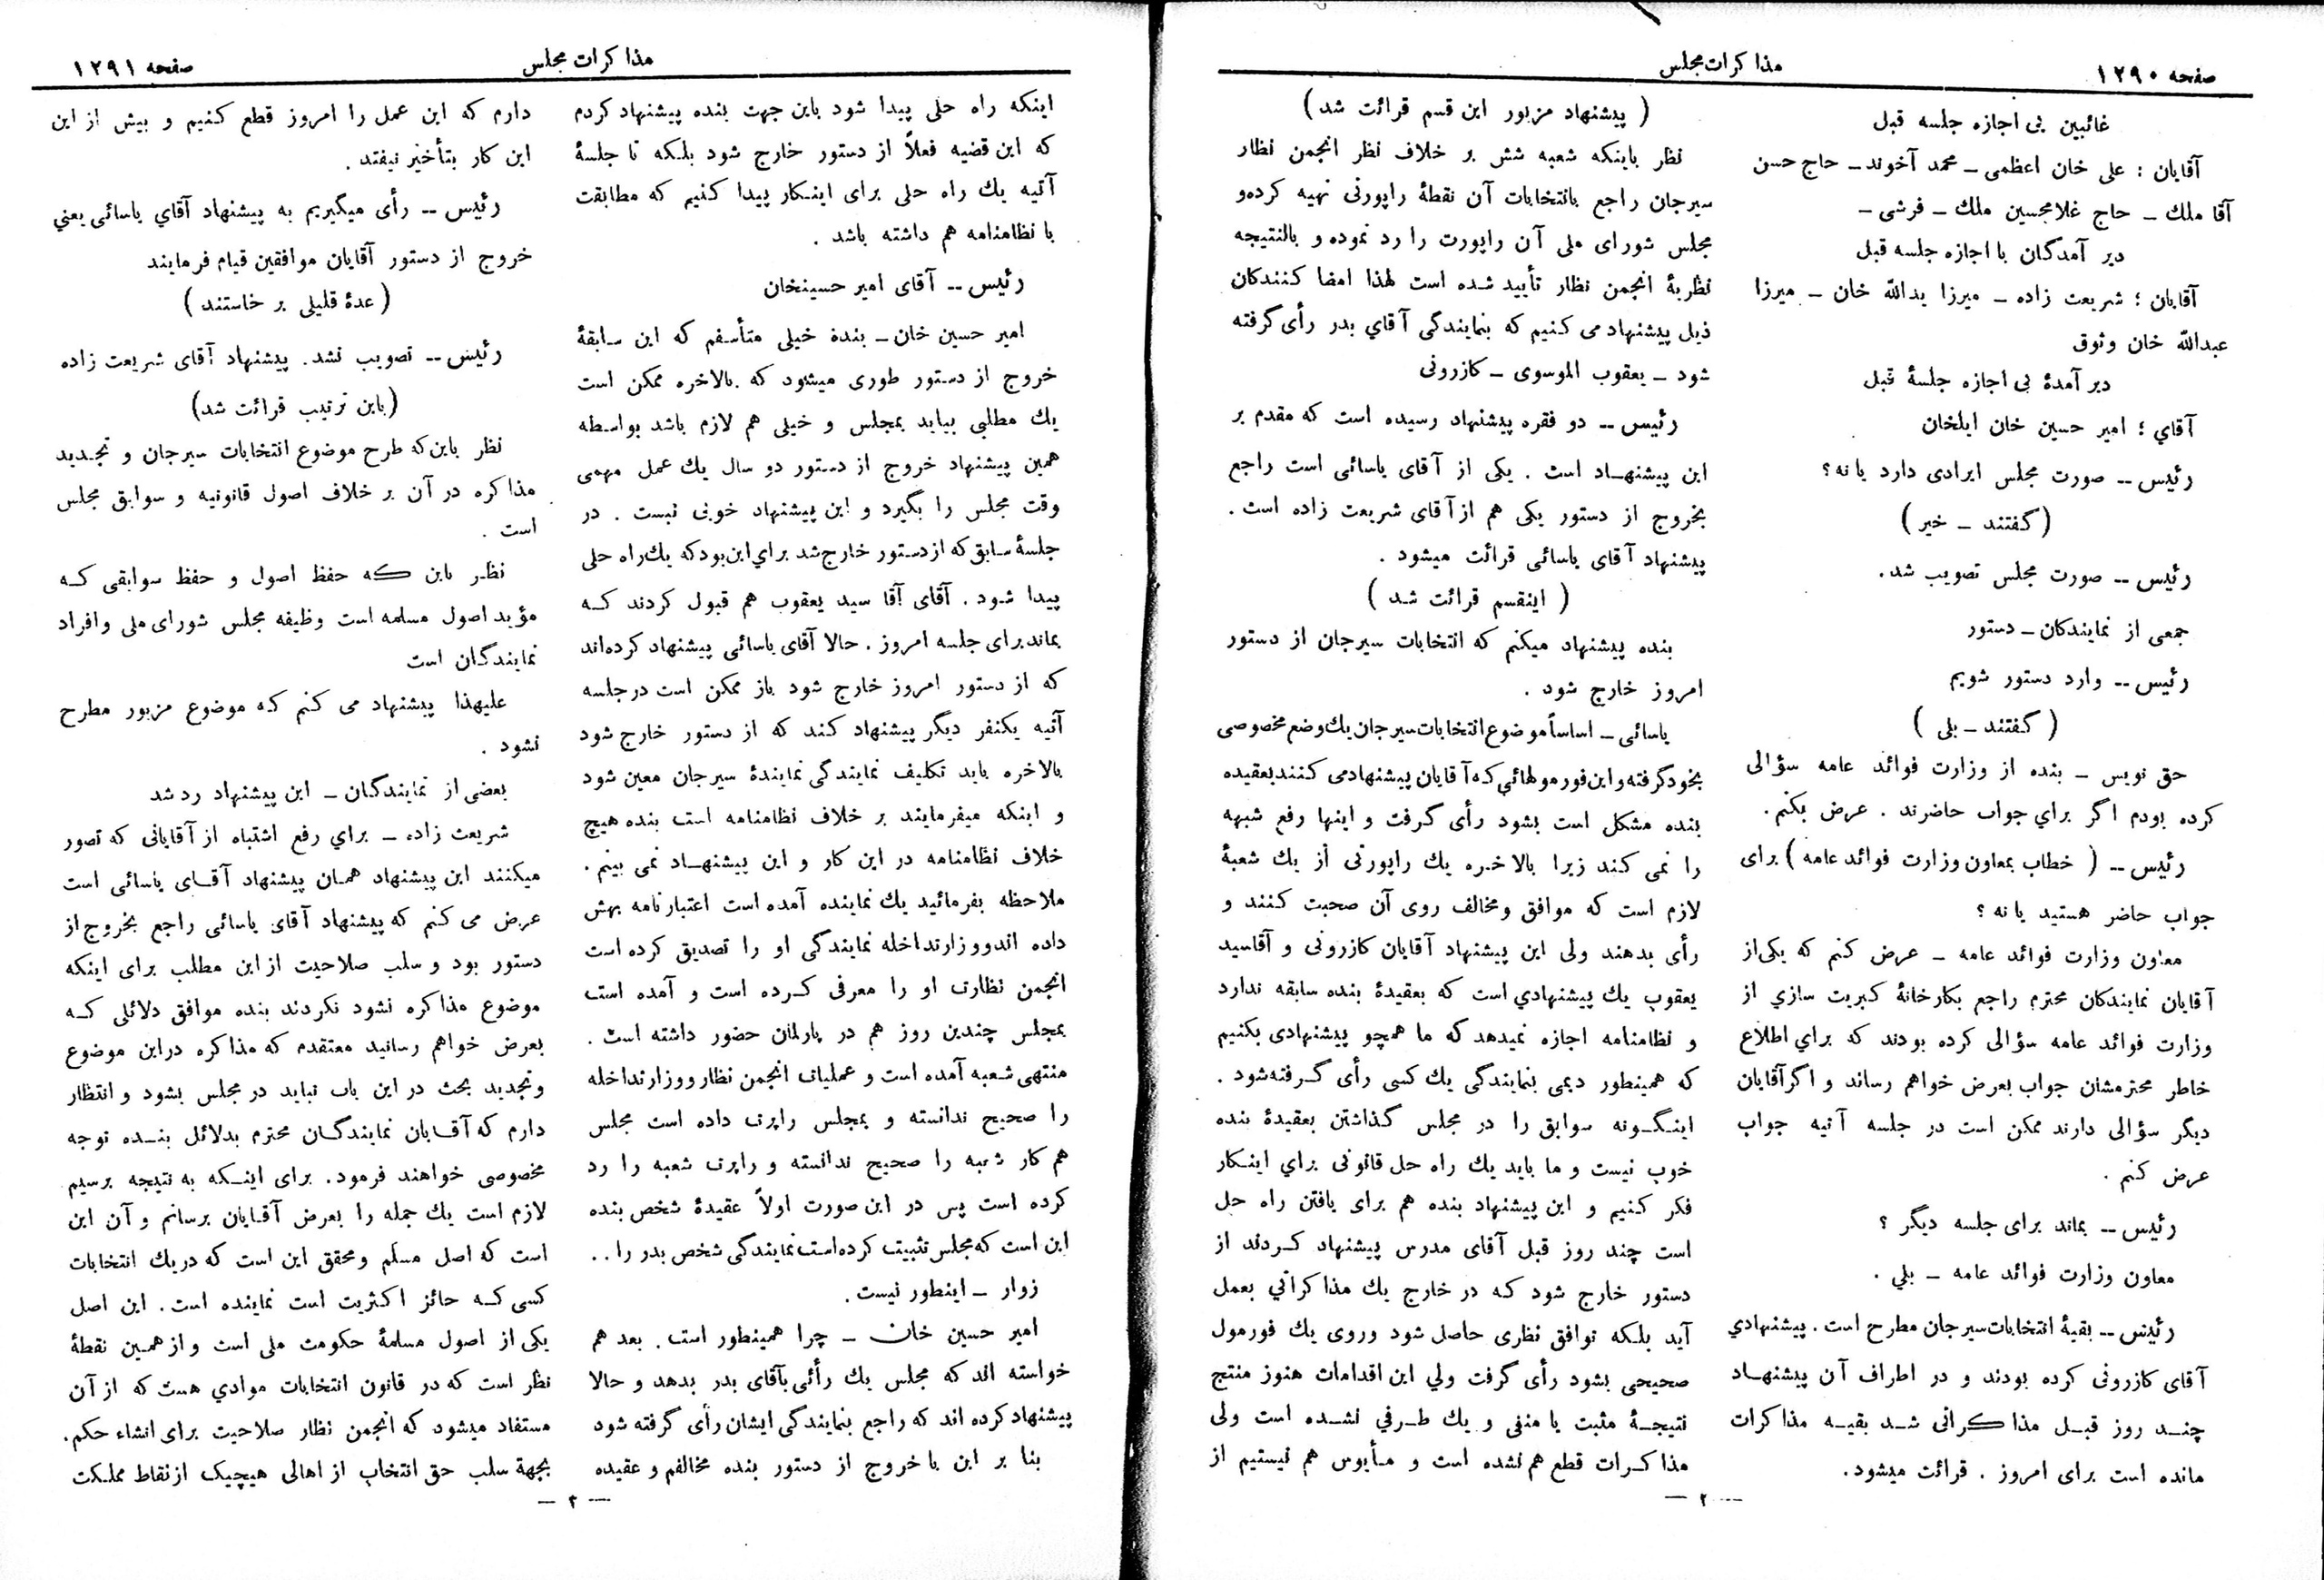 صفحه ۱۲۹۰
مذاکرات مجلس
غائبین بی اجازه جلسه قبل
آقایان : علی خان اعظمی ــ محمد آخوند ــ حاج حسن
آقا ملك ــ حاج غلامحسین ملك ــ فرشی ــ
دیر آمدگان با اجازه جلسه قبل
آقایان ؛ شریعت زاده ــ میرزا یدالله خان ــ میرزا
عبدالله خان وثوق
دیر آمدهٔ بی اجازه جلسهٔ قبل
آقاي ؛ امیر حسین خان ایلخان
رئیس ــ صورت مجلس ایرادی دارد یا نه؟
( گفتند ــ خیر )
رئیس ــ صورت مجلس تصویب شد.
جمعی از نمایندکان ــ دستور
رئیس ــ وارد دستور شویم
( گفتند ــ بلی )
حق نویس ــ بنده از وزارت فوائد عامه سؤالی
کرده بودم اگر براي جواب حاضرند . عرض بکنم.
رئیس ــ ( خطاب بمعاون وزارت فوائد عامه ) برای
جواب حاضر هستید یا نه ؟
معاون وزارت فوائد عامه ــ عرض کنم که یکی از
آقایان نمایندکان محترم راجع بکارخانهٔ کبریت سازي از
وزارت فوائد عامه سؤالی کرده بودند که براي اطلاع
خاطر محترمشان جواب بعرض خواهم رساند و اگر آقایان
دیگر سؤالی دارند ممکن است در جلسه آتیه جواب
عرض کنم .
رئیس ــ بماند برای جلسه دیگر ؟
معاون وزارت فوائد عامه ــ بلي .
رئیس ــ بقیهٔ انتخابات سیرجان مطرح است . پیشنهادي
آقای کازرونی کرده بودند و در اطراف آن پیشنهاد
چند روز قبل مذاکراتی شد بقیه مذاکرات
مانده است برای امروز . قرائت میشود.
( پیشنهاد مزبور این قسم قرائت شد )
نظر باینکه شعبه شش بر خلاف نظر انجمن نظار
سیرجان راجع بانتخابات آن نقطهٔ راپورتی تهیه کرده و
مجلس شورای ملی آن راپورت را رد نموده و بالنتیجه
نظریهٔ انجمن نظار تأیید شده است لهذا امضا کنندکان
ذیل پیشنهاد می کنیم که بنمایندگی آقاي بدر رأی گرفته
شود ــ یعقوب الموسوی ــ کازرونی
رئیس ــ دو فقره پیشنهاد رسیده است که مقدم بر
این پیشنهاد است . یکی از آقای یاسائی است راجع
بخروج از دستور یکی هم از آقای شریعت زاده است .
پیشنهاد آقای یاسائی قرائت میشود .
( اینقسم قرائت شد )
بنده پیشنهاد میکنم که انتخابات سیرجان از دستور
امروز خارج شود .
یاسائی ــ اساساً موضوع انتخابات سیرجان یك وضع مخصوصی
بخود گرفته و این فورمولهائي که آقایان پیشنهاد می کنند بعقیده
بنده مشکل است بشود رأی گرفت و اینها رفع شبهه
را نمی کند زیرا بالاخره یك راپورتی از یك شعبهٔ
لازم است که موافق و مخالف روی آن صحبت کنند و
رأی بدهند ولی این پیشنهاد آقایان کازرونی و آقاسید
یعقوب یك پیشنهادي است که بعقیدهٔ بنده سابقه ندارد
و نظامنامه اجازه نمیدهد که ما همچو پیشنهادی بکنیم
که همینطور دیمی بنمایندگی یك کسی رأی گرفته شود .
اینگونه سوابق را در مجلس گذاشتن بعقیدهٔ بنده
خوب نیست و ما باید یك راه حل قانونی براي اینکار
فکر کنیم و این پیشنهاد بنده هم برای یافتن راه حل
است چند روز قبل آقای مدرس پیشنهاد کردند از
دستور خارج شود که در خارج یك مذاکراتي بعمل
آید بلکه توافق نظری حاصل شود وروی یك فورمول
صحیحی بشود رأی گرفت ولي این اقدامات هنوز منتج
نتیجهٔ مثبت یا منفی و یك طرفي نشده است ولی
مذاکرات قطع هم نشده است و مأیوس هم نیستیم از
— ۲ —
مذاکرات مجلس
صفحه ۱۲۹۱
اینکه راه حلی پیدا شود باین جهت بنده پیشنهاد کردم
که این قضیه فعلاً از دستور خارج شود بلکه تا جلسهٔ
آتیه یك راه حلی برای اینکار پیدا کنیم که مطابقت
با نظامنامه هم داشته باشد .
رئیس ــ آقای امیر حسینخان
امیر حسین خان ــ بنده خیلی متأسفم که این سابقهٔ
خروج از دستور طوری میشود که بالاخره ممکن است
یك مطلبی بیاید بمجلس و خیلی هم لازم باشد بواسطه
همین پیشنهاد خروج از دستور دو سال یك عمل مهمی
وقت مجلس را بگیرد و این پیشنهاد خوبی نیست . در
جلسهٔ سابق که از دستور خارج شد براي این بود که یك راه حلی
پیدا شود . آقای آقا سید یعقوب هم قبول کردند که
بماند برای جلسه امروز . حالا آقای یاسائی پیشنهاد کرده اند
که از دستور امروز خارج شود باز ممکن است در جلسه
آتیه یکنفر دیگر پیشنهاد کند که از دستور خارج شود
بالاخره باید تکلیف نمایندگی نمایندهٔ سیرجان معین شود
و اینکه میفرمایند بر خلاف نظامنامه است بنده هیچ
خلاف نظامنامه در این کار و این پیشنهاد نمی بینم .
ملاحظه بفرمائید یك نماینده آمده است اعتبارنامه بهش
داده اند و وزارتداخله نمایندگی او را تصدیق کرده است
انجمن نظارت او را معرفی کرده است و آمده است
بمجلس چندین روز هم در پارلمان حضور داشته است .
منتهی شعبه آمده است و عملیات انجمن نظار و وزارتداخله
را صحیح ندانسته و بمجلس راپرت داده است مجلس
هم کار شعبه را صحیح ندانسته و راپرت شعبه را رد
کرده است پس در این صورت اولاً عقیدهٔ شخص بنده
این است که مجلس تثبیت کرده است نمایندگی شخص بدر را . .
زوار ــ اینطور نیست .
امیر حسین خان ــ چرا همینطور است . بعد هم
خواسته اند که مجلس یك رأئی بآقای بدر بدهد و حالا
پیشنهاد کرده اند که راجع بنمایندگی ایشان رأی گرفته شود
بنا بر این با خروج از دستور بنده مخالفم و عقیده
دارم که این عمل را امروز قطع کنیم و بیش از این
این کار بتأخیر نیفتد .
رئیس ــ رأی میگیریم به پیشنهاد آقاي یاسائی یعني
خروج از دستور آقایان موافقین قیام فرمایند
( عدهٔ قلیلی بر خاستند )
رئیس ــ تصویب نشد. پیشنهاد آقای شریعت زاده
(باین ترتیب قرائت شد)
نظر باین که طرح موضوع انتخابات سیرجان و تجدید
مذاکره در آن بر خلاف اصول قانونیه و سوابق مجلس
است .
نظر باین که حفظ اصول و حفظ سوابقی که
مؤید اصول مسلمه است وظیفه مجلس شورای ملی و افراد
نمایندگان است
علیهذا پیشنهاد می کنم که موضوع مزبور مطرح
نشود .
بعضی از نمایندگان ــ این پیشنهاد رد شد
شریعت زاده ــ براي رفع اشتباه از آقایانی که تصور
میکنند این پیشنهاد همان پیشنهاد آقای یاسائی است
عرض می کنم که پیشنهاد آقای یاسائی راجع بخروج از
دستور بود و سلب صلاحیت از این مطلب برای اینکه
موضوع مذاکره نشود نکردند بنده موافق دلائلی که
بعرض خواهم رسانید معتقدم که مذاکره در این موضوع
و تجدید بحث در این باب نباید در مجلس بشود و انتظار
دارم که آقایان نمایندگان محترم بدلائل بنده توجه
مخصوصی خواهند فرمود. برای اینکه به نتیجه برسیم
لازم است یك جمله را بعرض آقایان برسانم و آن این
است که اصل مسلم و محقق این است که در یك انتخابات
کسی که حائز اکثریت است نماینده است . این اصل
یکی از اصول مسلمهٔ حکومت ملی است و از همین نقطهٔ
نظر است که در قانون انتخابات موادي هست که از آن
مستفاد میشود که انجمن نظار صلاحیت برای انشاء حکم.
بجهة سلب حق انتخاب از اهالی هیچیك از نقاط مملکت
— ۳ —